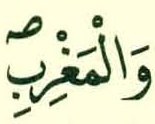 وَالْمَغْرِبِ صه